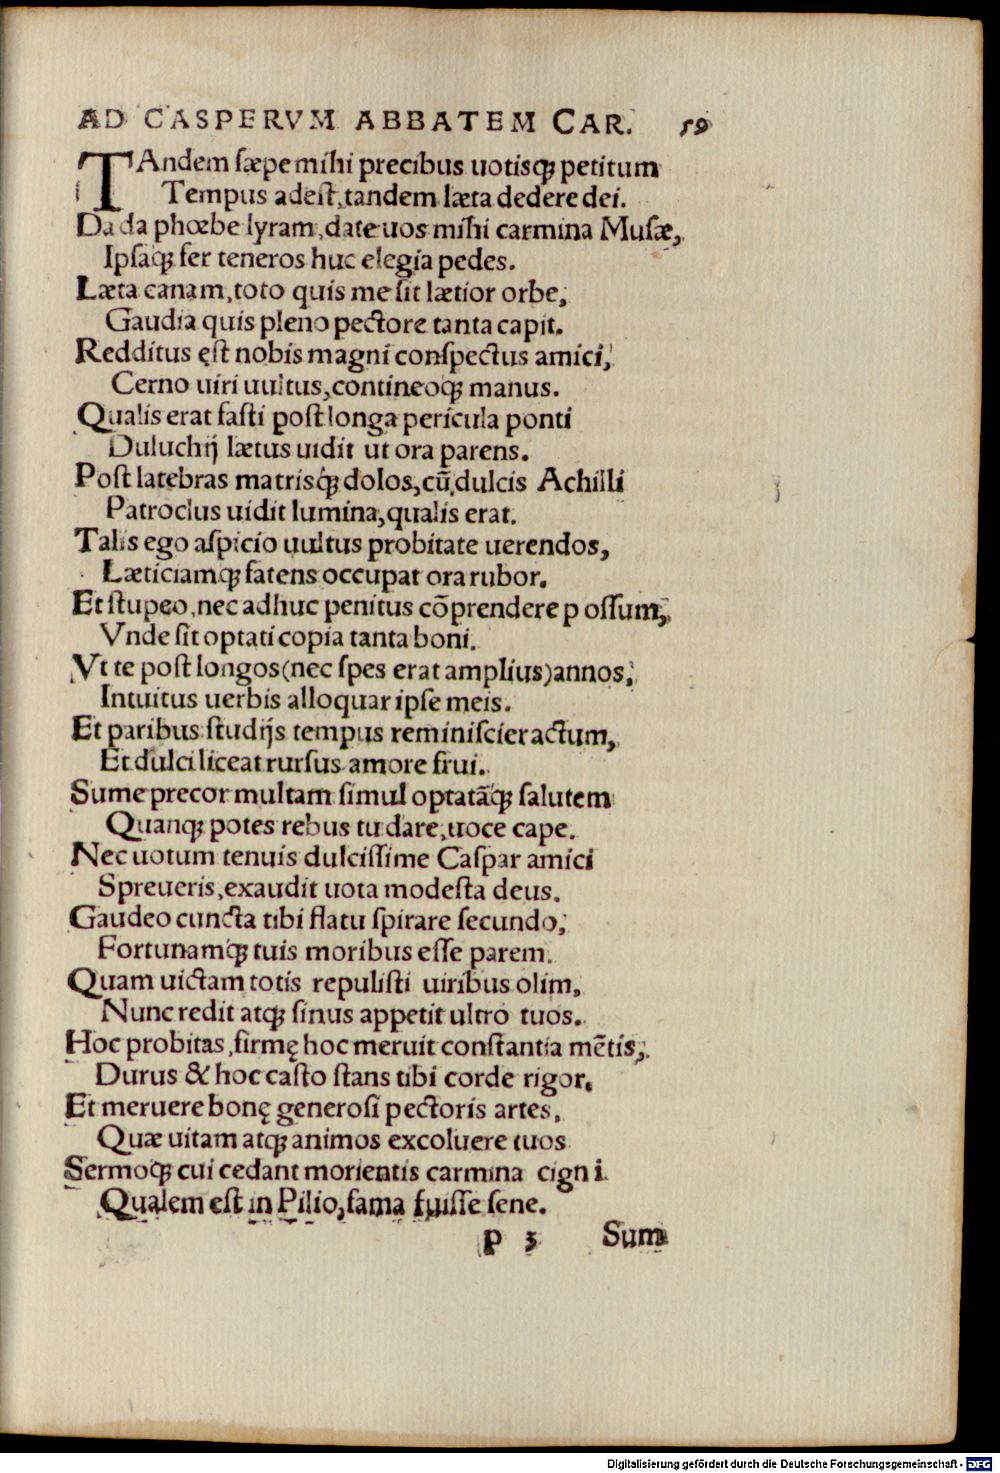 AD CASPERVM ABBATEM CAR. 59
TAndem sæpe mihi precibus uotisq; petitum
Tempus adest, tandem læta dedere dei.
Da da phœbe lyram, date uos mihi carmina Musæ,
Ipsaq; fer teneros huc elegia pedes.
Læta canam, toto quis me sit lætior orbe,
Gaudia quis pleno pectore tanta capit.
Redditus ęst nobis magni conspectus amici,
Cerno uiri uultus, contineoq; manus.
Qualis erat fasti post longa pericula ponti
Duluchij lætus uidit ut ora parens.
Post latebras matrisq; dolos, cū dulcis Achilli
Patroclus uidit lumina, qualis erat.
Talis ego aspicio uultus probitate uerendos,
Læticiamq; fatens occupat ora rubor.
Et stupeo, nec adhuc penitus cōprendere possum,
Vnde sit optati copia tanta boni.
Vt te post longos (nec spes erat amplius) annos,
Intuitus uerbis alloquar ipse meis.
Et paribus studijs tempus reminiscier actum,
Et dulci liceat rursus amore frui.
Sume precor multam simul optatāq; salutem
Quanq; potes rebus tu dare, uoce cape.
Nec uotum tenuis dulcissime Caspar amici
Spreueris, exaudit uota modesta deus.
Gaudeo cuncta tibi flatu spirare secundo,
Fortunamq; tuis moribus esse parem.
Quam uictam totis repulisti uiribus olim,
Nunc redit atq; sinus appetit ultro tuos.
Hoc probitas, firmę hoc meruit constantia mētis,
Durus & hoc casto stans tibi corde rigor.
Et meruere bonę generosi pectoris artes,
Quæ uitam atq; animos excoluere tuos
Sermoq; cui cedant morientis carmina cigni
Qualem est in Pilio, fama fuisse sene.
P 3 Sum
Digitalisierung gefördert durch die Deutsche Forschungsgemeinschaft - DFG